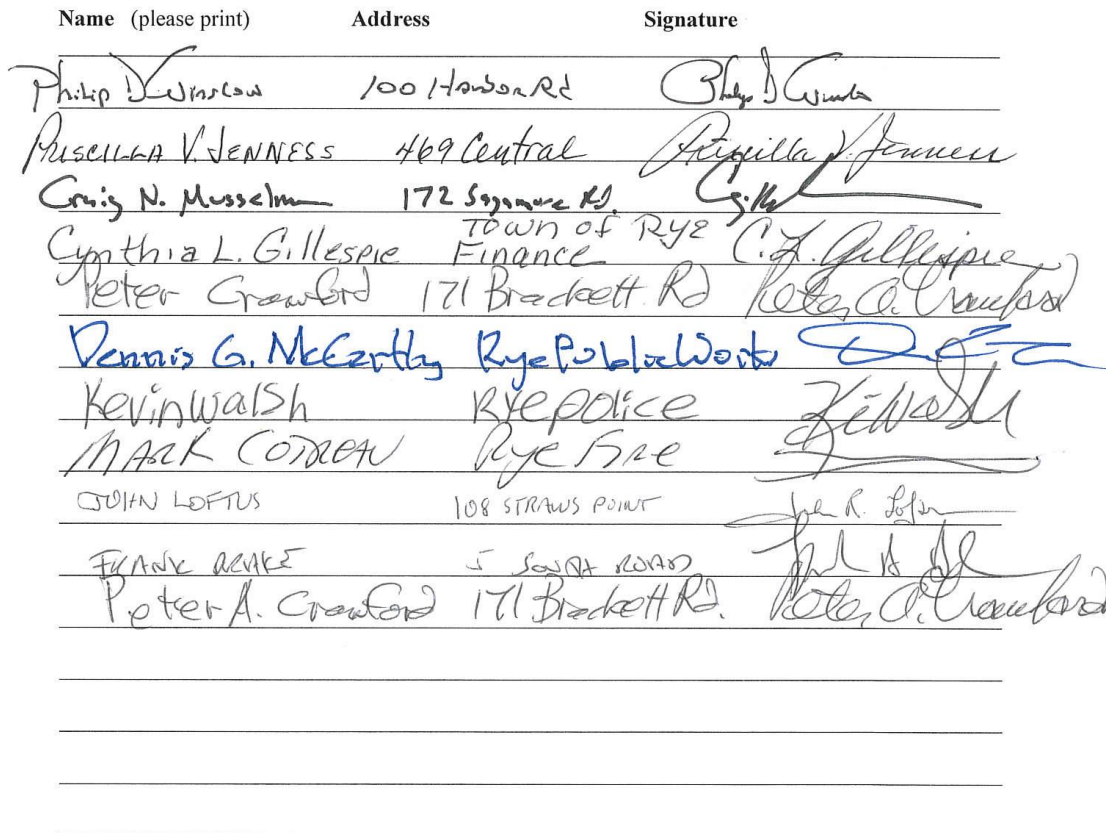 Name (please print) Address Signature
Philip D Winslow 100 Harbor Rd
PRISCILLA V. JENNESS 469 Central Priscilla V. Jenness
Craig N. Musselman 172 Sagamore Rd.
Cynthia L. Gillespie Town of Rye Finance C. L. Gillespie
Peter Crawford 171 Brackett Rd Peter A. Crawford
Dennis G. McCarthy Rye Public Works
Kevin Walsh Rye police K Walsh
MARK COTREAU Rye Fire
JOHN LOFTUS 108 STRAWS POINT John R. Loftus
FRANK DRAKE 5 SOUTH ROAD
Peter A. Crawford 171 Brackett Rd. Peter A. Crawford